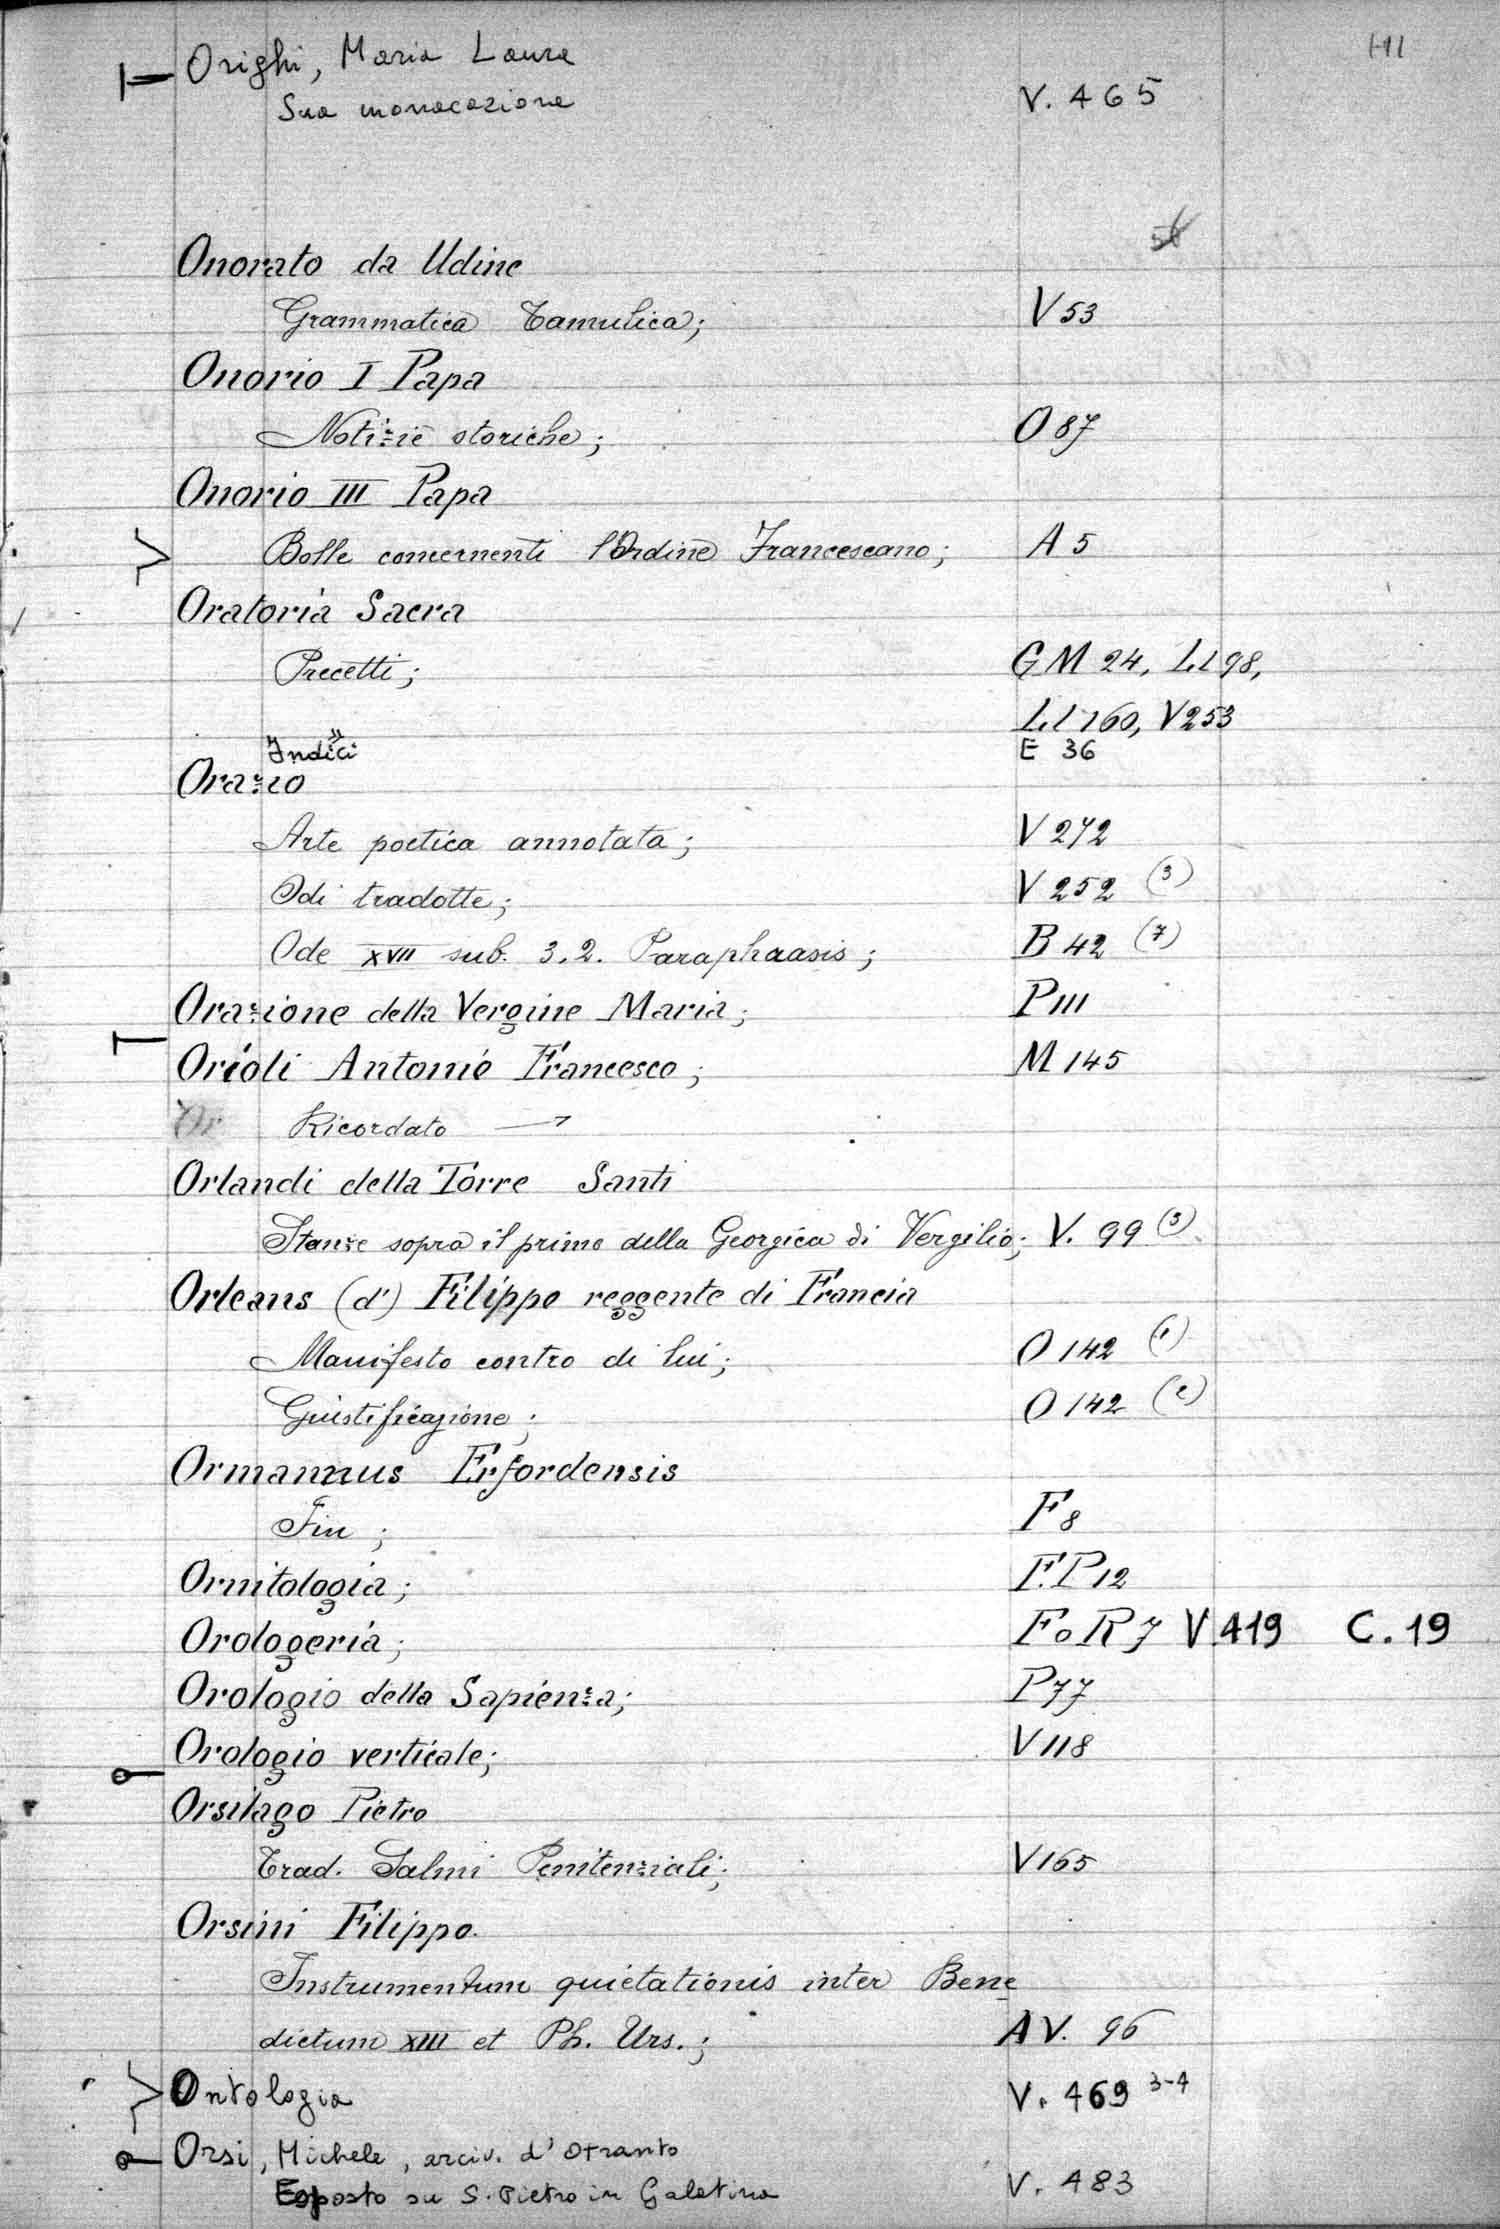 Orighi, Maria Laura
Sua monacazione V. 465
Onorato da Udine
Grammatica Tamulica; V 53
Onorio I Papa
Notizie storiche; O 87
Onorio III Papa
Bolle concernenti l'Ordine Francescano; A 5
Oratoria Sacra
Precetti; G M 24, L1 98,
L1 160, V 253
Indici E 36
Orazio
Arte poetica annotata; V 272
Odi tradotte; V 252 (3)
Ode XVII sub. 3.2. Paraphaasis; B 42 (7)
Orazione della Vergine Maria; P 111
Orioli Antonio Francesco; M 145
Ricordato →
Orlandi della Torre Santi
Stanze sopra il primo della Georgica di Vergilio; V. 99 (3)
Orleans (d') Filippo reggente di Francia
Manifesto contro di lui; O 142 (1)
Giustificazione; O 142 (2)
Ormannus Erfordensis
Fin; F 8
Ornitologia; F.P 12
Orologeria; Fo R 7 V 419 C. 19
Orologio della Sapienza; P 77
Orologio verticale; V 118
Orsilago Pietro
Trad. Salmi Penitenziali; V 165
Orsini Filippo.
Instrumentum quietationis inter Bene
dictum XIII et Ph. Urs.; A V. 96
Ontologia V. 469 3-4
Orsi, Michele, arciv. d'Otranto
Esposto su S. Pietro in Galatina V. 483